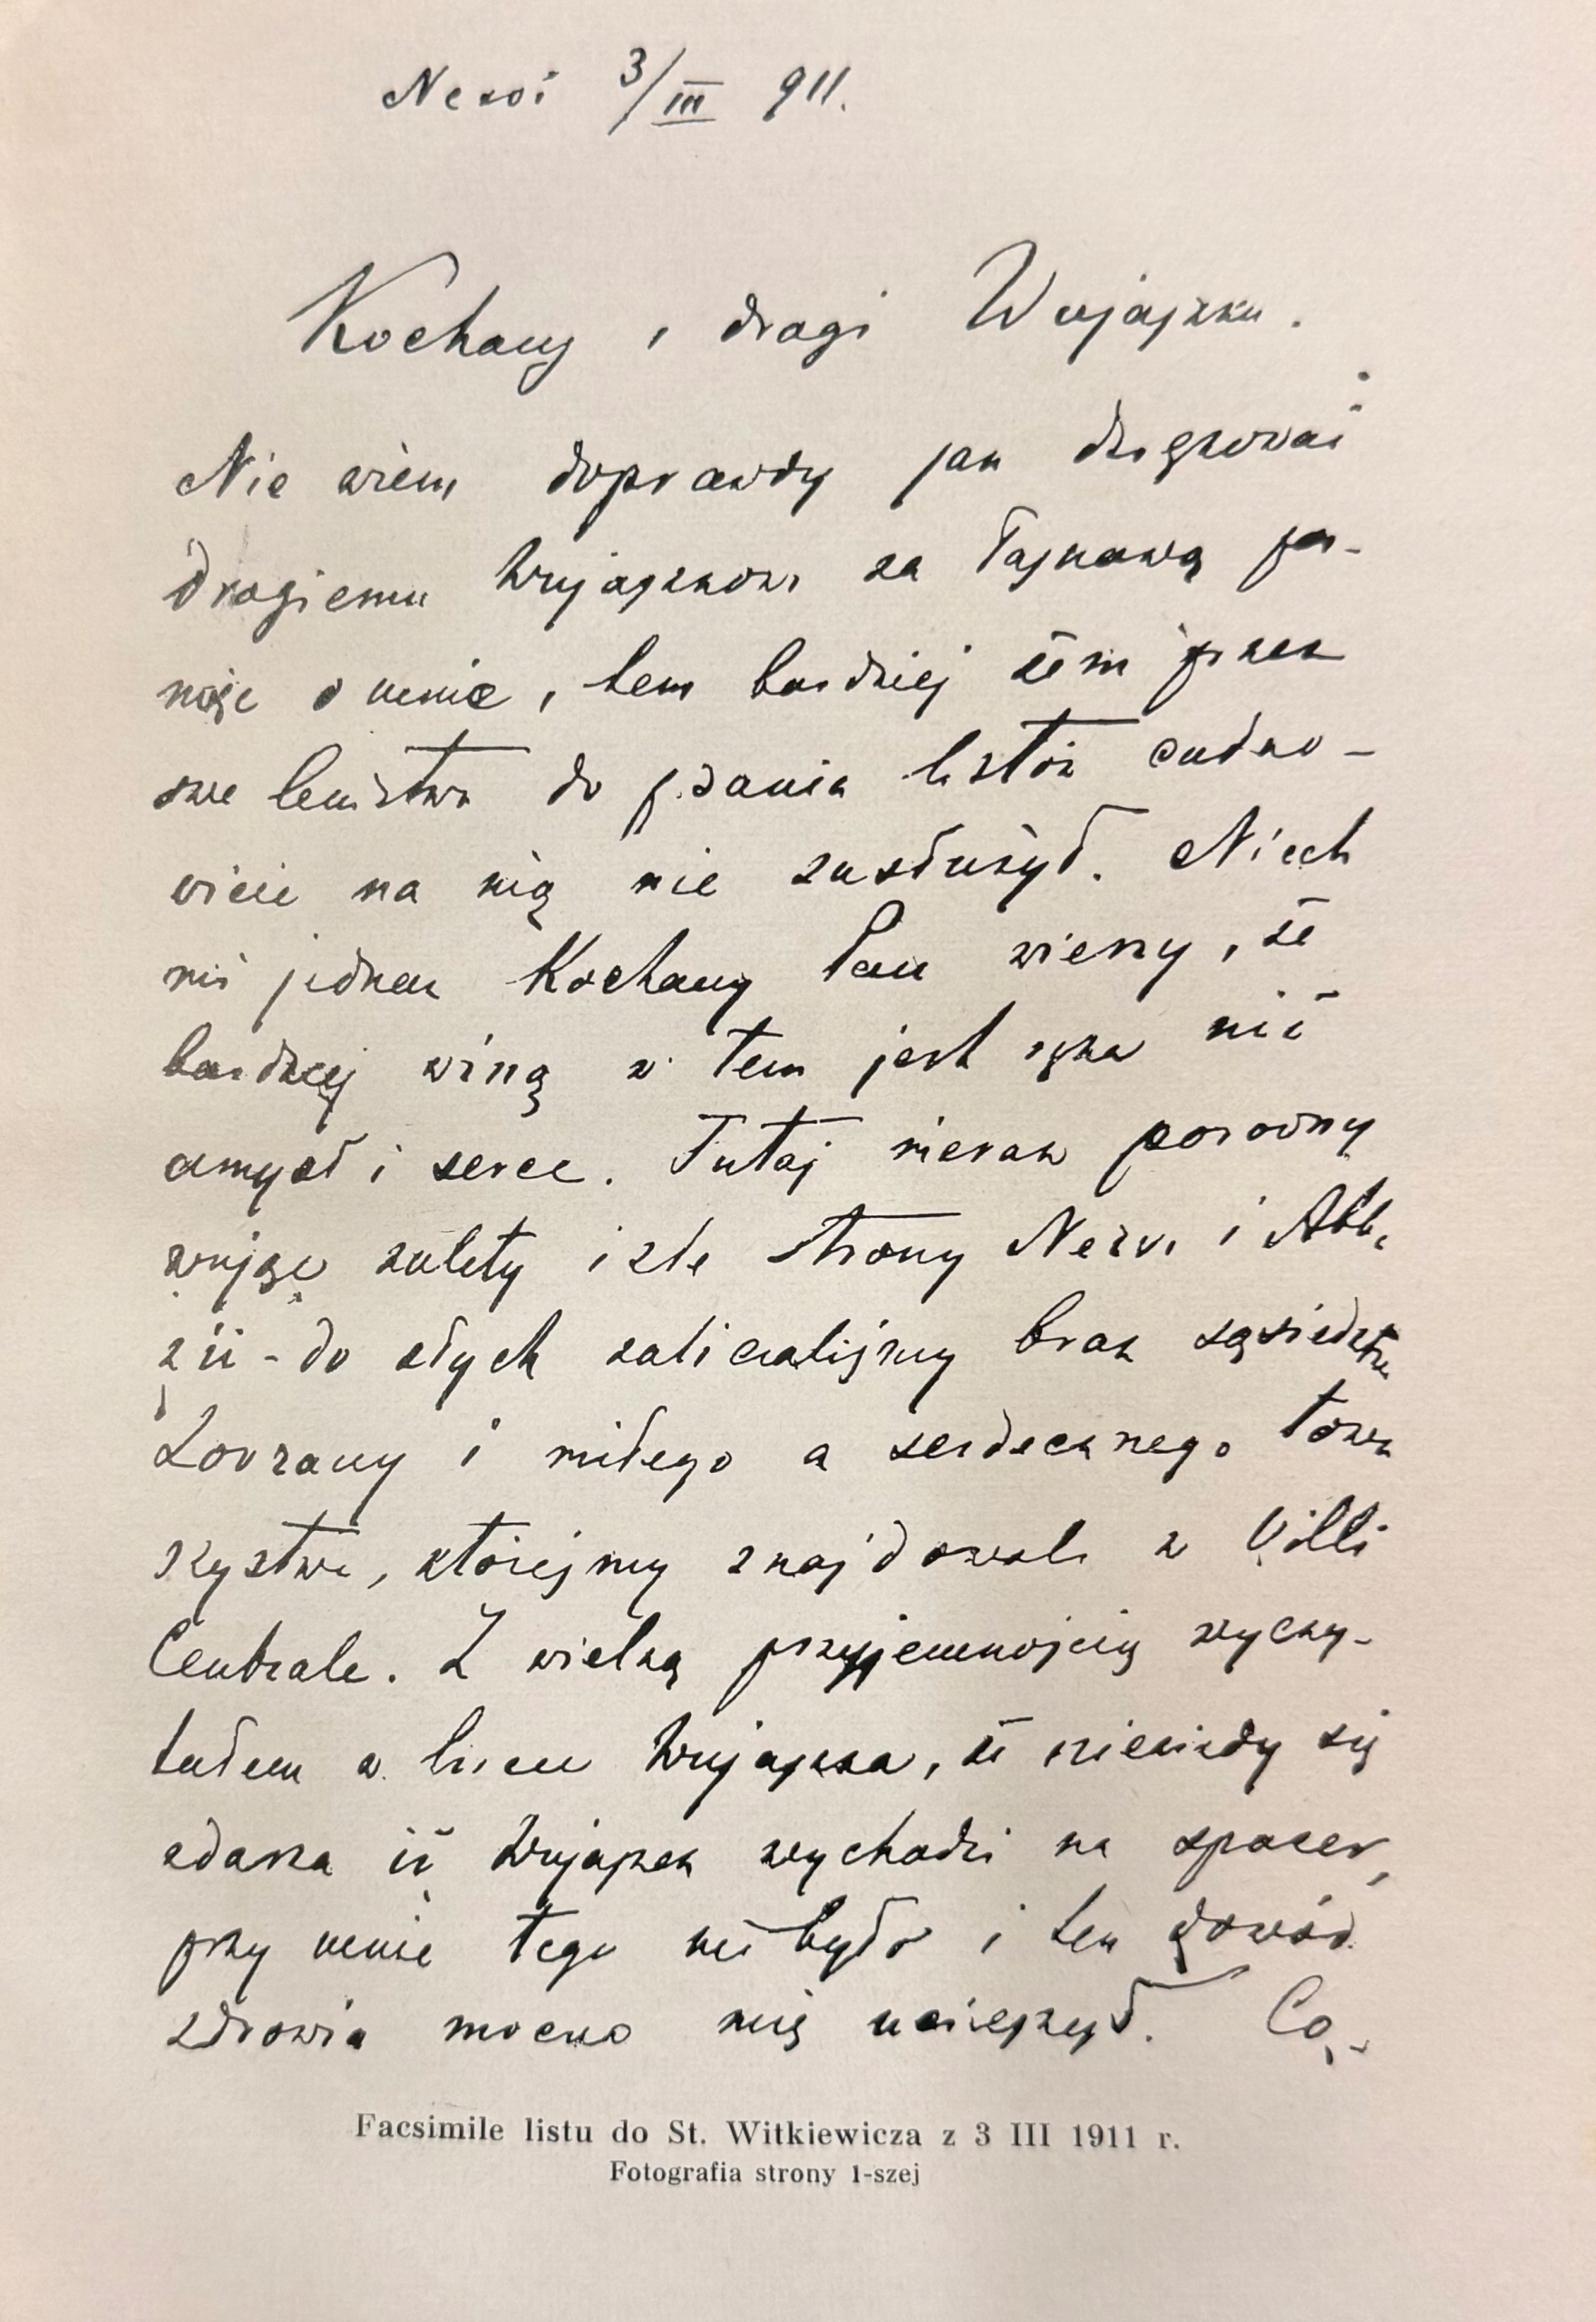 Nervi 3/III 911.
Kochany i drogi Wujaszku.
Nie wiem doprawdy jak dziękować
drogiemu Wujaszkowi za łaskawą pa-
mięć o mnie, tem bardziej żem przez
swe lenistwo do pisania listów cudno-
wicie na nią nie zasłużył. Niech
mi jednak Kochany Pan wierzy, że
bardziej winą w tem jest ręka niż
umysł i serce. Tutaj nieraz porówny
wując zalety i złe strony Nervi i Abba
zii - do złych zaliczaliśmy brak sąsiedztwa
Lovrany i miłego a serdecznego towa
rzystwa, któreśmy znajdowali w Villi
Centrale. Z wielką przyjemnością wyczy-
tałem w liście Wujaszka, że niekiedy się
zdarza iż Wujaszek wychodzi na spacer,
przy mnie tego nie było i ten dowód
zdrowia mocno mię ucieszył. Co
Facsimile listu do St. Witkiewicza z 3 III 1911 r.
Fotografia strony 1-szej